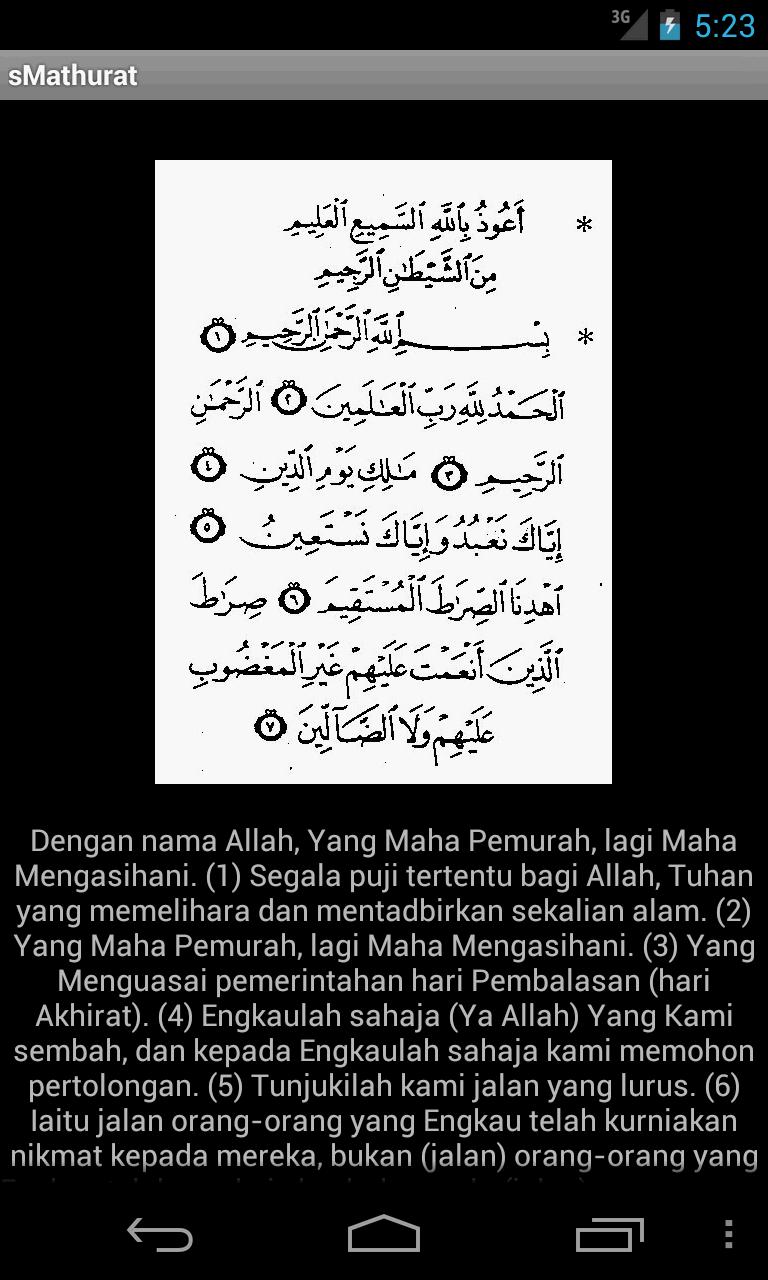 3G 5:23
sMathurat
* أَعُوذُ بِاللَّهِ السَّمِيعِ الْعَلِيمِ
مِنَ الشَّيْطَانِ الرَّجِيمِ
* بِسْمِ اللَّهِ الرَّحْمَٰنِ الرَّحِيمِ ١
الْحَمْدُ لِلَّهِ رَبِّ الْعَالَمِينَ ٢ الرَّحْمَٰنِ
الرَّحِيمِ ٣ مَالِكِ يَوْمِ الدِّينِ ٤
إِيَّاكَ نَعْبُدُ وَإِيَّاكَ نَسْتَعِينُ ٥
اهْدِنَا الصِّرَاطَ الْمُسْتَقِيمَ ٦ صِرَاطَ
الَّذِينَ أَنْعَمْتَ عَلَيْهِمْ غَيْرِ الْمَغْضُوبِ
عَلَيْهِمْ وَلَا الضَّآلِّينَ ٧
Dengan nama Allah, Yang Maha Pemurah, lagi Maha
Mengasihani. (1) Segala puji tertentu bagi Allah, Tuhan
yang memelihara dan mentadbirkan sekalian alam. (2)
Yang Maha Pemurah, lagi Maha Mengasihani. (3) Yang
Menguasai pemerintahan hari Pembalasan (hari
Akhirat). (4) Engkaulah sahaja (Ya Allah) Yang Kami
sembah, dan kepada Engkaulah sahaja kami memohon
pertolongan. (5) Tunjukilah kami jalan yang lurus. (6)
Iaitu jalan orang-orang yang Engkau telah kurniakan
nikmat kepada mereka, bukan (jalan) orang-orang yang